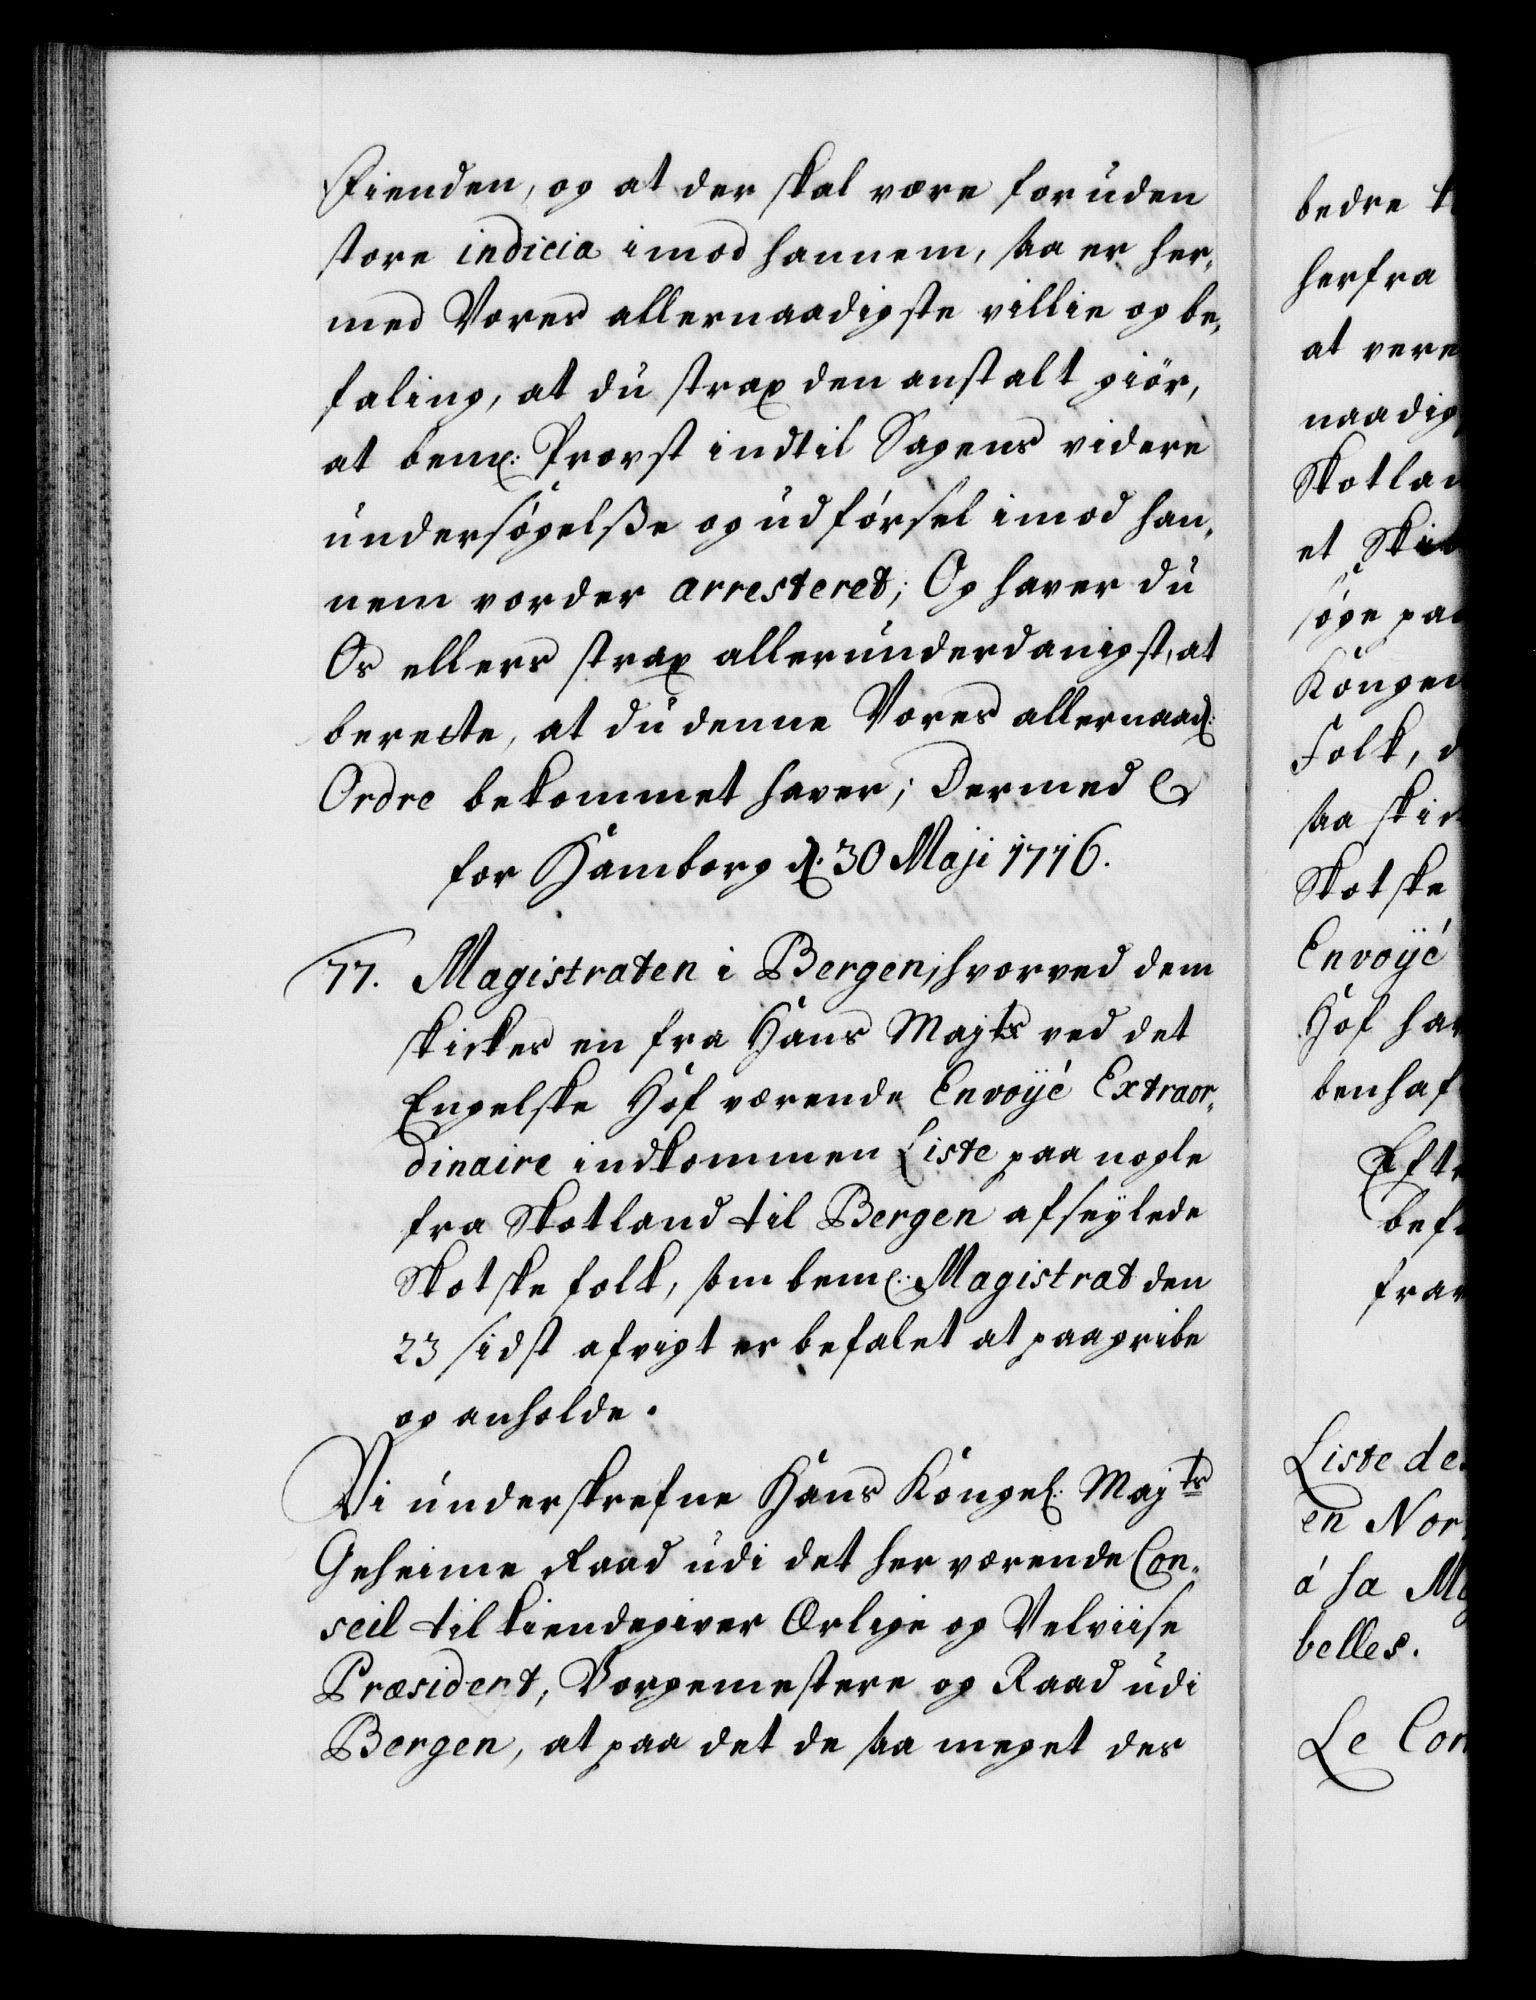 Fienden, og at der skal være foruden
store indicia imod hannem, saa er her„
med Vores allernaadigste villie og be„
faling, at du strax den anstalt giör,
at bem: Provst indtil Sagens videre
undersøgelsße og udførsel imod han„
nem vorder arresteret; Og haver du
Os ellers strax allerunderdanigst, at
berette, at du denne Vores allernaad:
Ordre bekommet haver; Dermed
for Hamborg d: 30 Maji 1716.
77. Magistraten i Bergen, hvorved dem
skickes en fra Hans Majts ved det
Engelske Hof værende Envoÿé Extraor„
dinaire indkommen Liste paa nogle
fra Skotland til Bergen afseÿlede
Skotske folk, som bem: Magistrat den
23 sidst afvigt er befalet at paagribe
og anholde.
Vi underskrefne Hans Kongel: Majts
Geheime Raad udi det her værende Con„
seil tilkiendegiver Ærlige og Velviise
Præsident, Borgemestere og Raad udi
Bergen, at paa det de saa meget des
bedre
herfra
at vere
naadig
Skotlan
et
søge paa
Kongen
Folk, d
saa
Skotske
Envoÿé
Hof har
benhaf
Efte
bef
fra
Liste de
en Nor
á sa Ma
belles.
Le Com